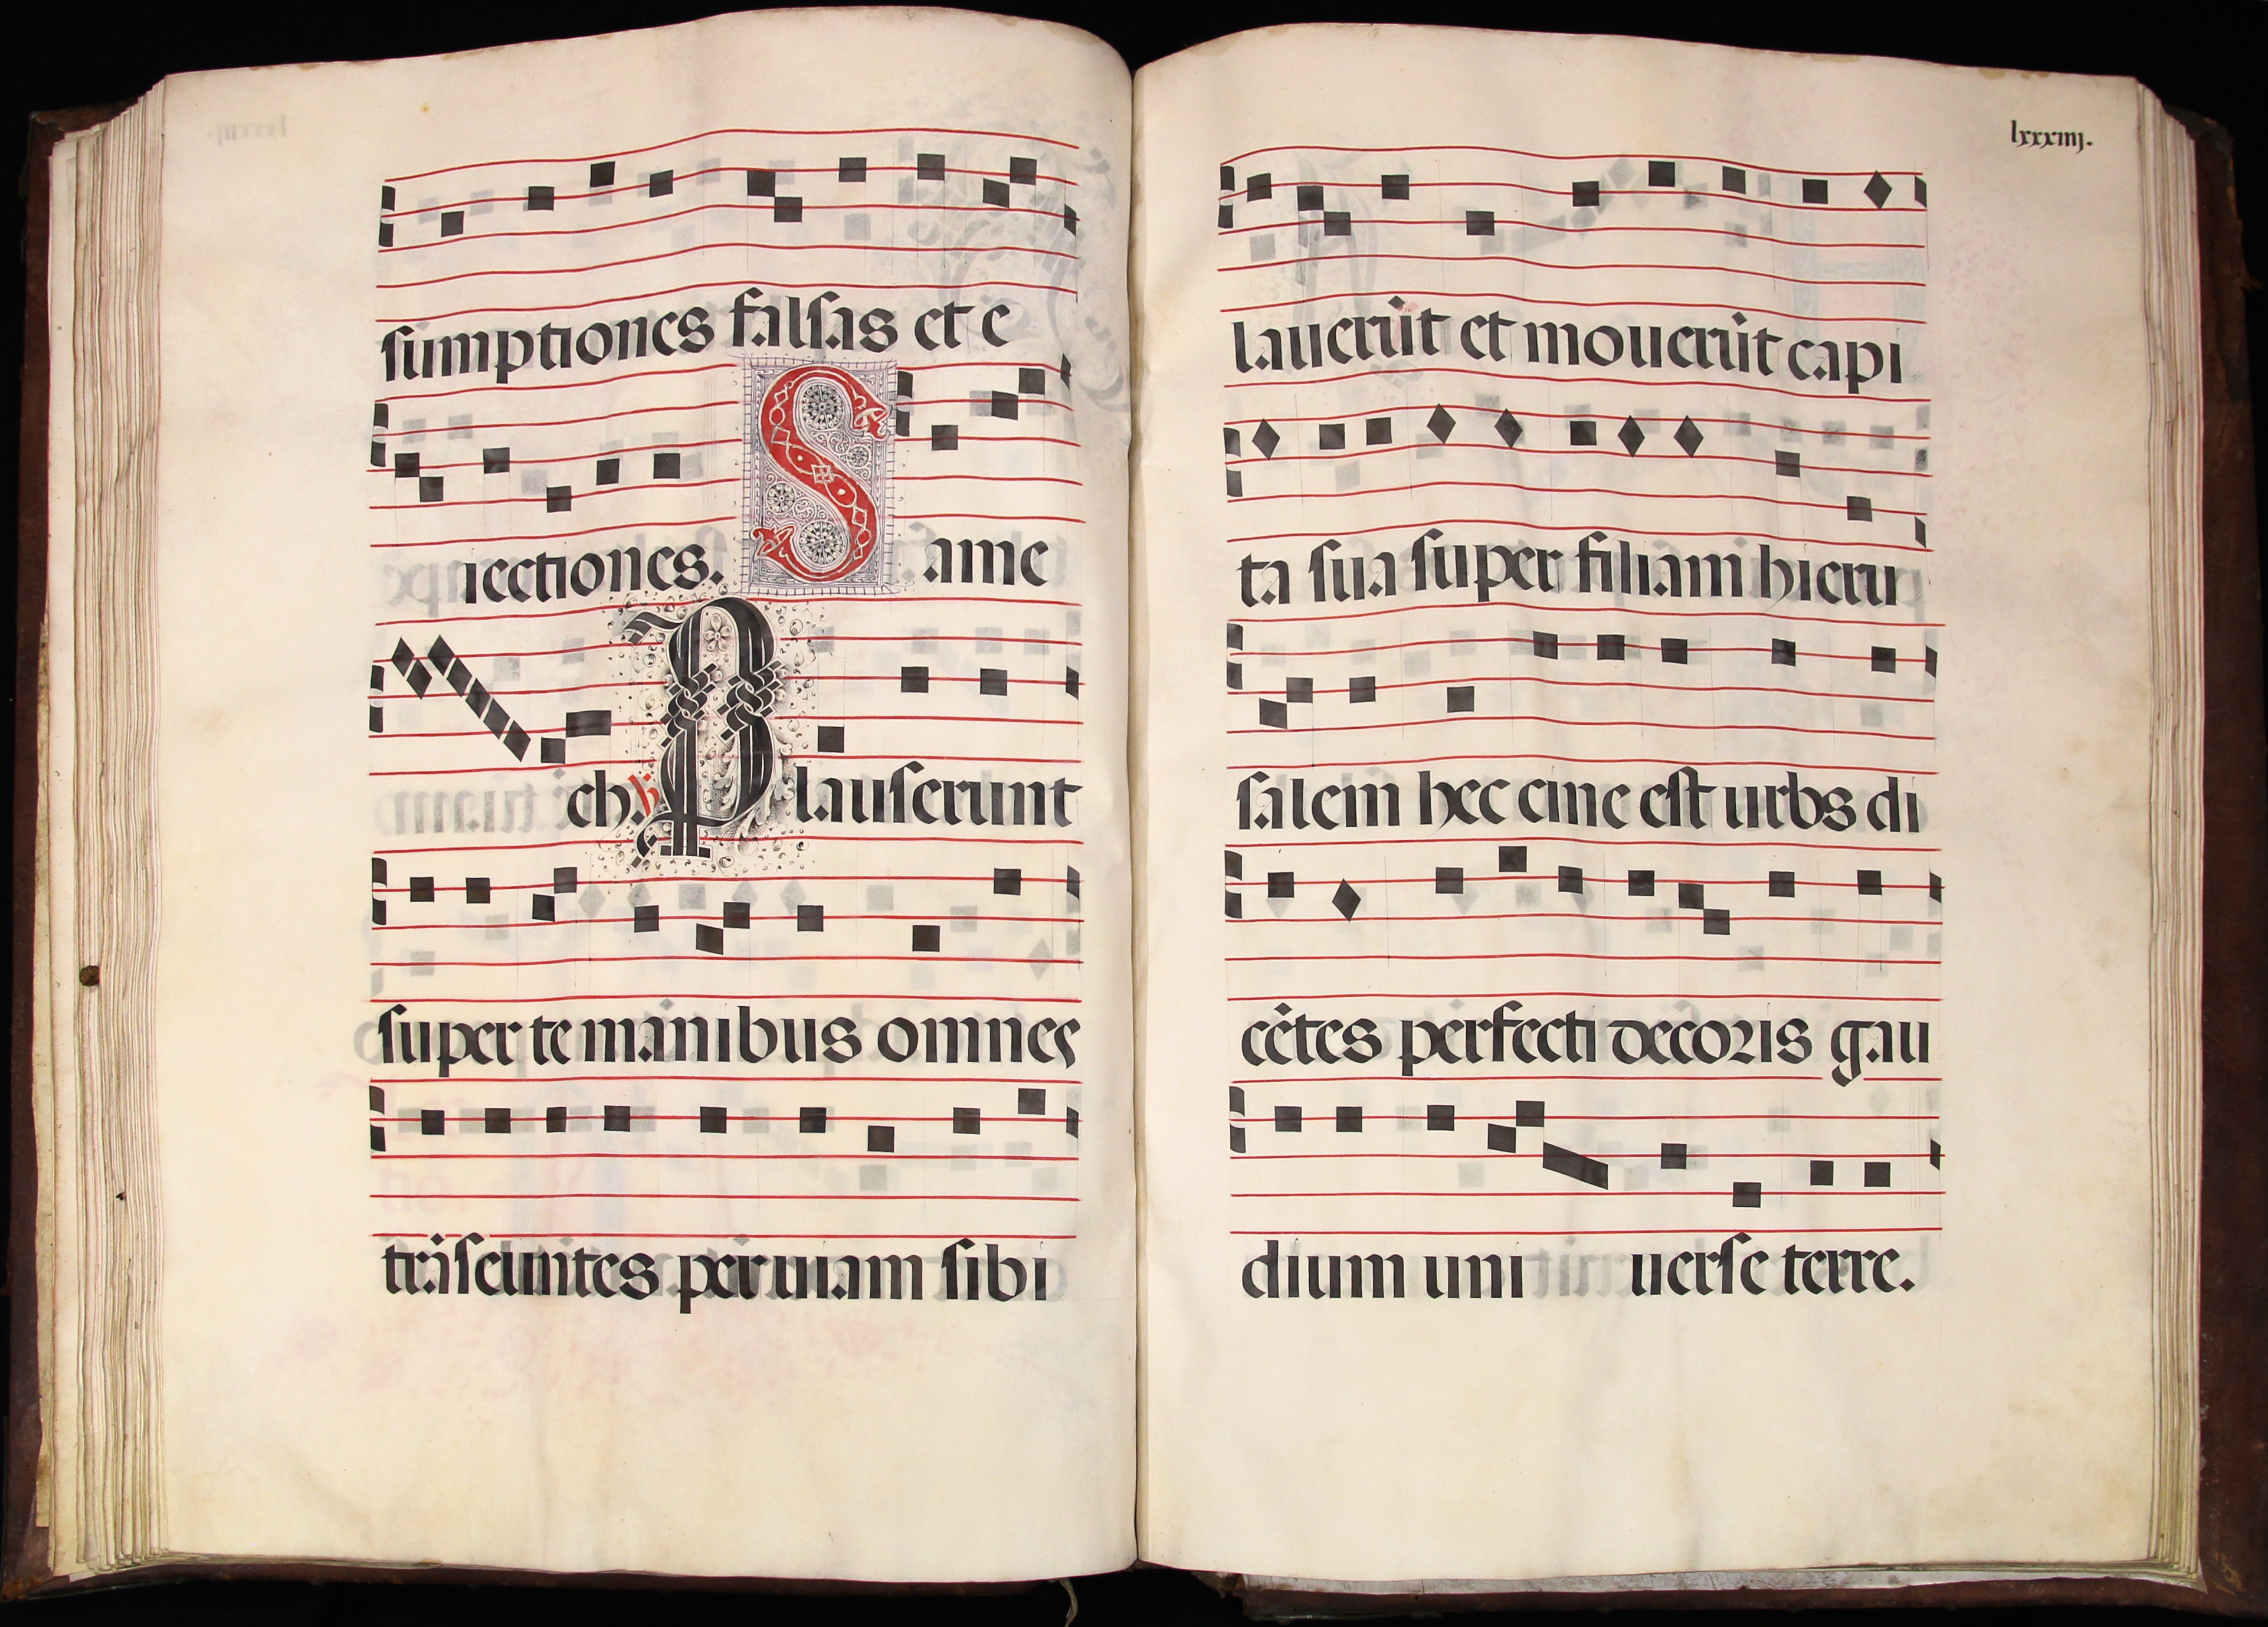 sumptiones falsas et e
iectiones. Same
ch. ℣ Plauserunt
super te manibus omnes
trãseuntes per uiam sibi
lxxxiiij.
lauerũt et mouerũt capi
ta sua super filiam hieru
salem hec cine est urbs di
cẽtes perfecti decoris gau
dium uni uerse terre.